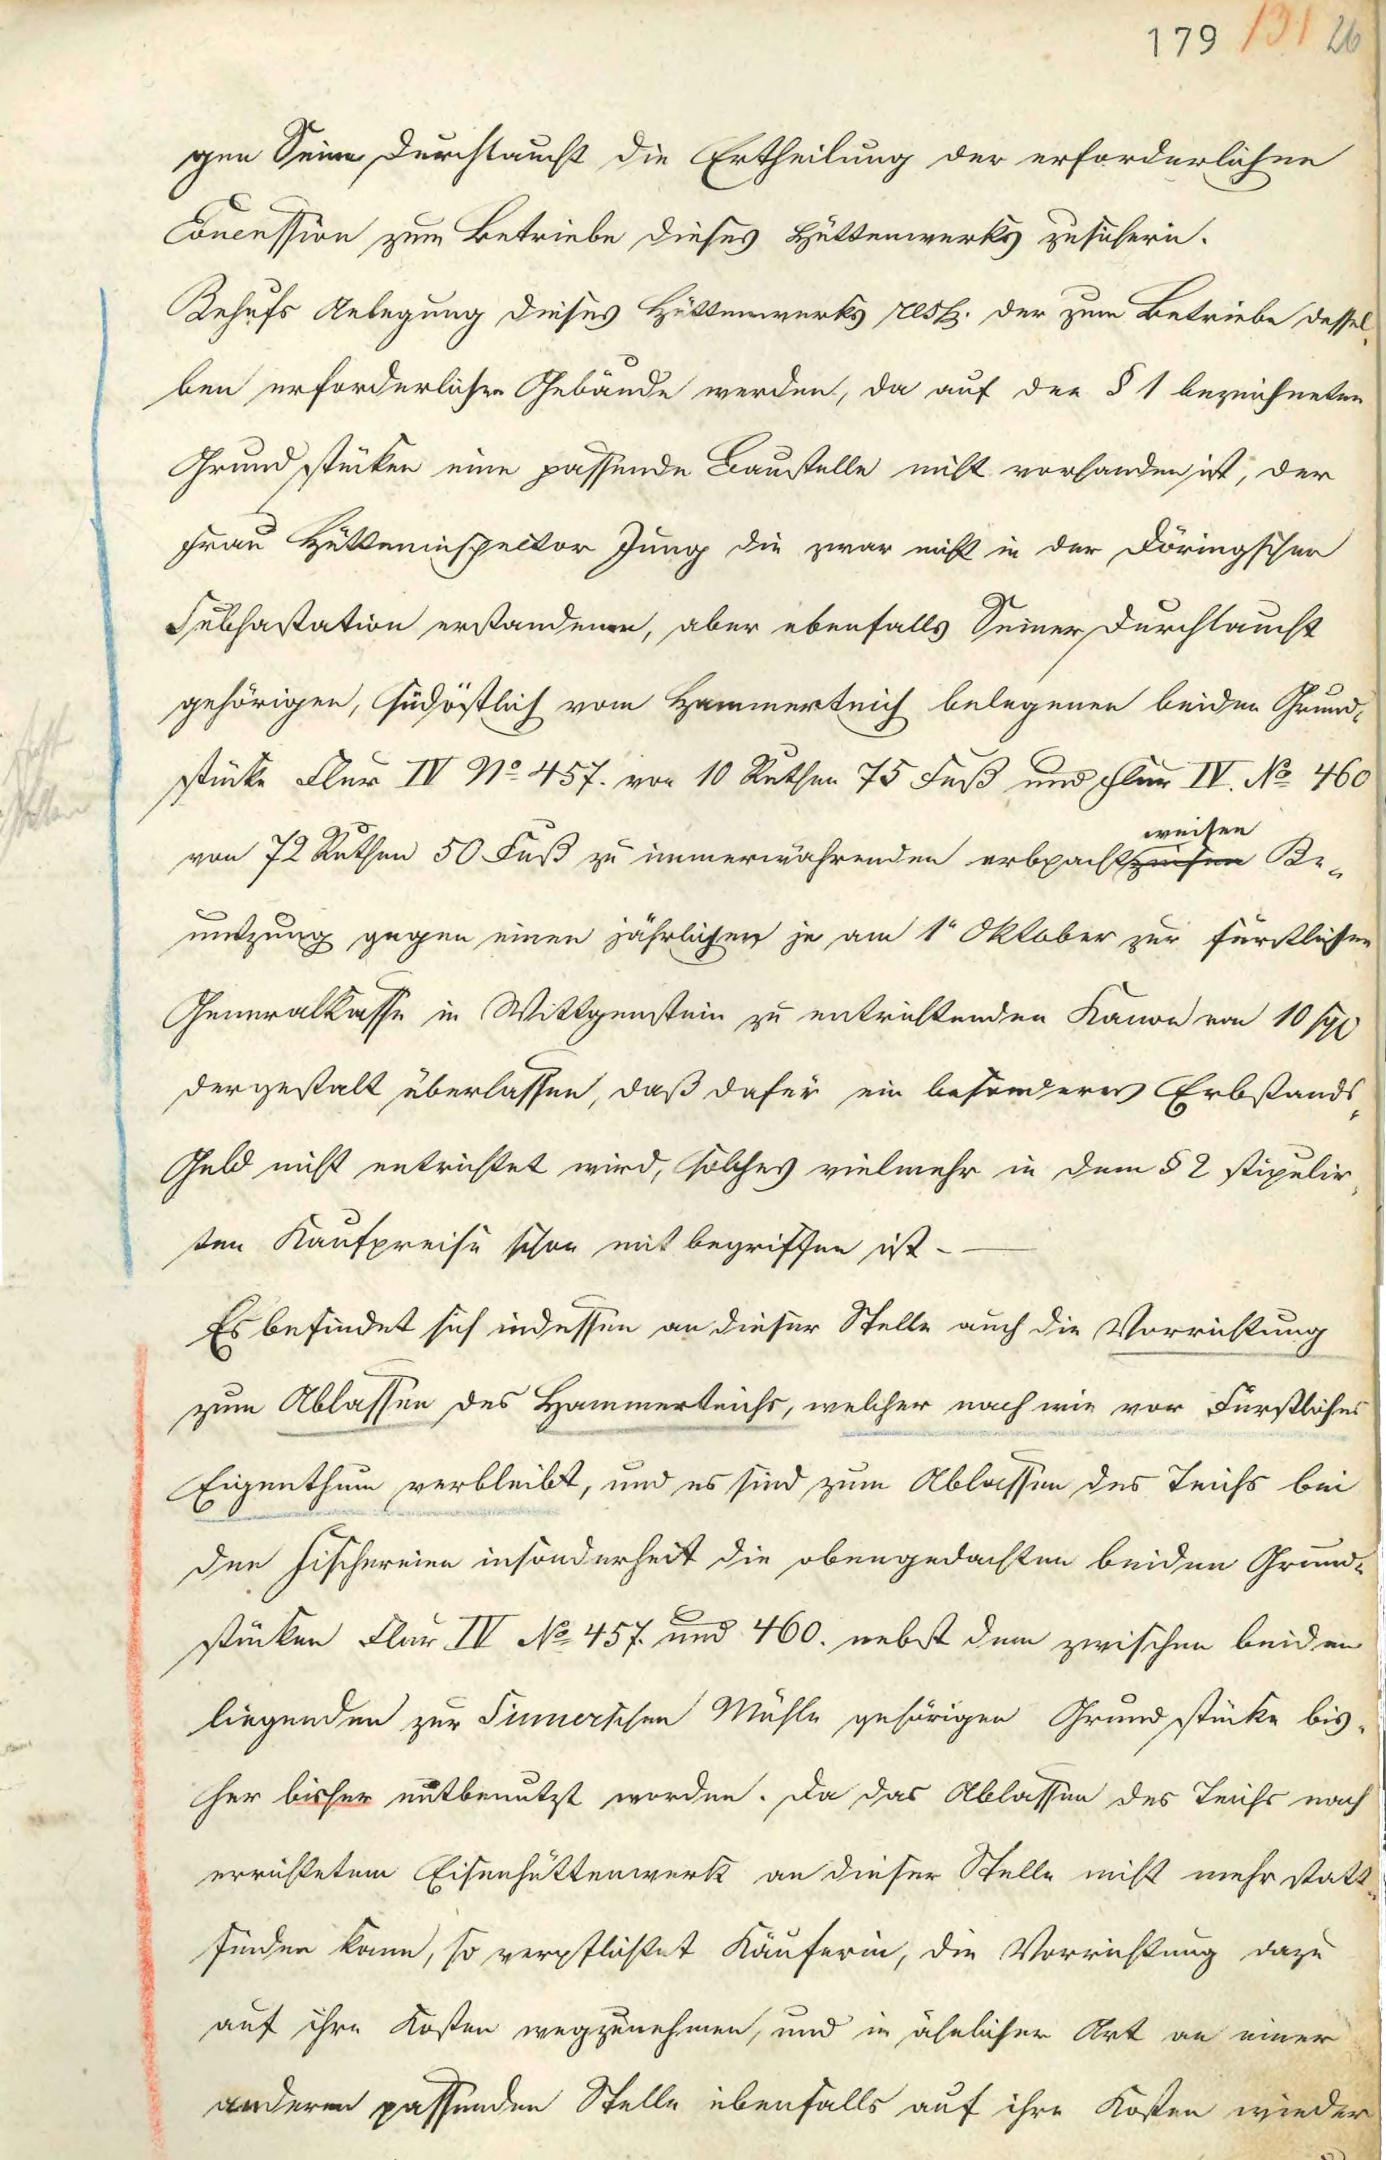 179 131 26
gen Seine Durchlaucht die Ertheilung der erforderlichen
Concession zum Betriebe dieses Hüttenwerks zusichern.
Behufs Anlegung dieses Hüttenwerks resp. der zum Betriebe dessel-
ben erforderlichen Gebäude werden, da auf den § 1 bezeichneten
Grundstücken eine passende Baustelle nicht vorhanden ist, der
Frau Hütteninspector Jung die zwar nicht in der Döringschen
Subhastation erstandenen, aber ebenfalls Seiner Durchlaucht
gehörigen, südöstlich vom Hammerteich belegenen beiden Grund-
stücke Flur IV No 457. von 10 Ruthen 75 Fuß und Flur IV. No 460
weisen
von 72 Ruthen 50 Fuß zu immerwährenden erbpacht Be-
nutzung gegen einen jährlichen je am 1n Oktober zur Fürstlichen
Generalkasse in Wittgenstein zu entrichtenden Kanon von 10 sgr
dergestalt überlassen, daß dafür ein besonderes Erbstands-
Geld nicht entrichtet wird, solches vielmehr in dem § 2 stipulir-
ten Kaufpreise schon mit begriffen ist. —
Es befindet sich indessen an dieser Stelle auch die Vorrichtung
zum Ablassen des Hammerteichs, welcher nach wie vor Fürstliches
Eigenthum verbleibt, und es sind zum Ablassen des Teichs bei
den Fischereien insonderheit die obengedachten beiden Grund-
stücken Flur IV No 457. und 460. nebst dem zwischen beiden
liegenden zur Simerschen Mühle gehörigen Grundstücke bis-
her bisher mitbenutzt worden. Da das Ablassen des Teichs nach
errichtetem Eisenhüttenwerk an dieser Stelle nicht mehr statt-
finden kann, so verpflichtet Käuferin, die Vorrichtung dazu
auf ihre Kosten wegzunehmen, und in ähnlicher Art an einer
anderen passenden Stelle ebenfalls auf ihre Kosten wieder